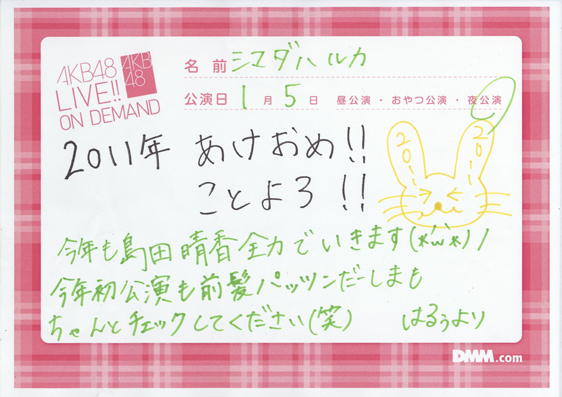 AKB48
LIVE!!
ON DEMAND
AKB
48
名前 シマダハルカ
公演日 1月5日 昼公演・おやつ公演・夜公演
2011年 あけおめ!!
ことよろ!!
2011
2011
今年も島田晴香全力でいきます(*'ω'*)ノ
今年初公演も前髪パッツンだーしまも
ちゃんとチェックしてください(笑) はるぅより
DMM.com